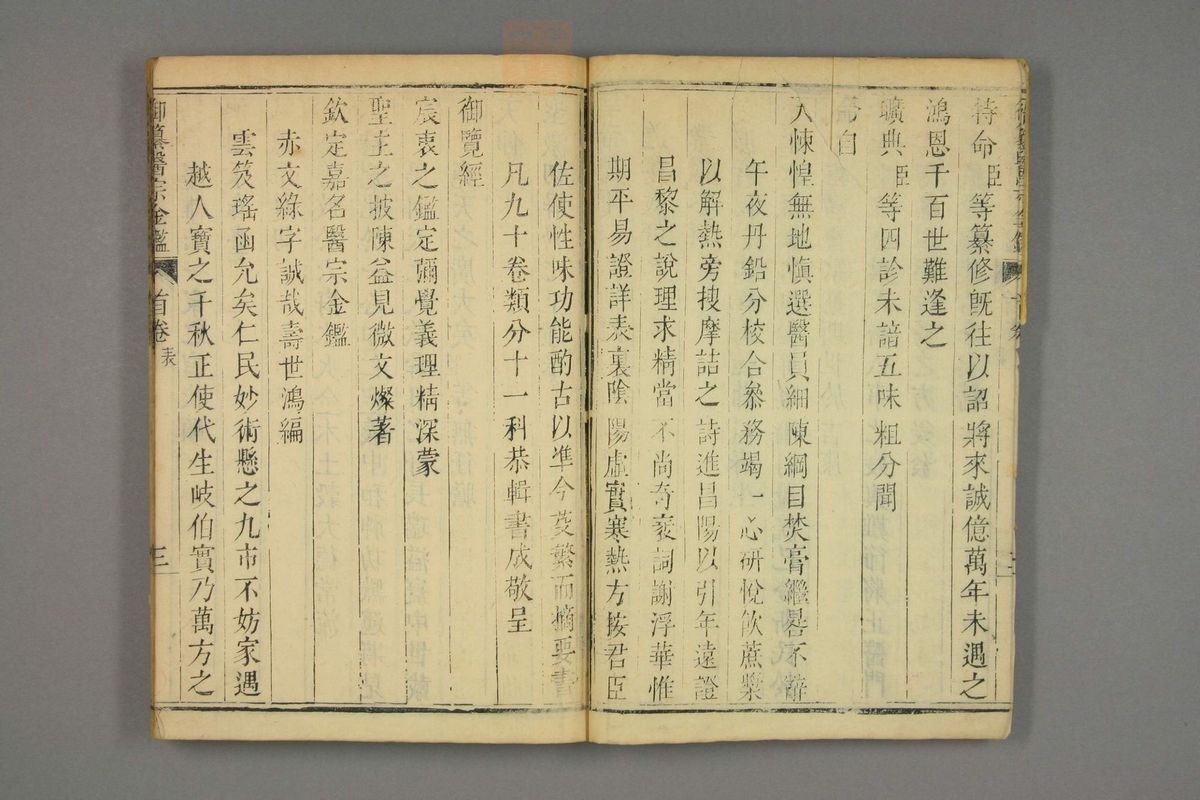 特命臣等纂修既往以詔將來誠億萬年未遇之
鴻恩千百世難逢之
曠典臣等四診未諳五味粗分聞
命自
天悚惶無地慎選醫員細陳綱目焚膏繼晷不辭
午夜丹鉛分校合參務竭一心研悅飲蔗漿
以解熱旁搜摩詰之詩進昌陽以引年遠證
昌黎之說理求精當不尚奇衺詞謝浮華惟
期平易證詳表裏陰陽虛實寒熱方按君臣
佐使性味功能酌古以準今芟繁而摘要書
凡九十卷類分十一科恭輯書成敬呈
御覽經
宸衷之鑑定彌覺義理精深蒙
聖主之披陳益見微文燦著
欽定嘉名醫宗金鑑
赤文綠字誠哉壽世鴻編
雲笈瑤函允矣仁民妙術懸之九市不妨家遇
越人寶之千秋正使代生岐伯實乃萬方之
御纂醫宗金鑑 首卷 表 三